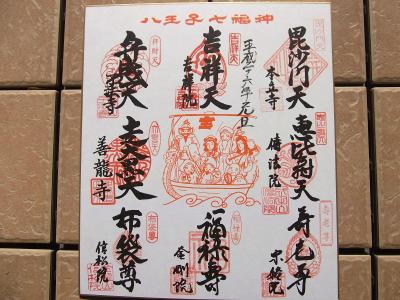 八王子七福神
毘沙門天
本立寺
恵比寿天
傳法院
寿老尊
宗格院
平成二十六年元旦
吉祥天
吉祥院
宝
福禄寿
金剛院
弁財天
走大黒天
善龍寺
布袋尊
信松院